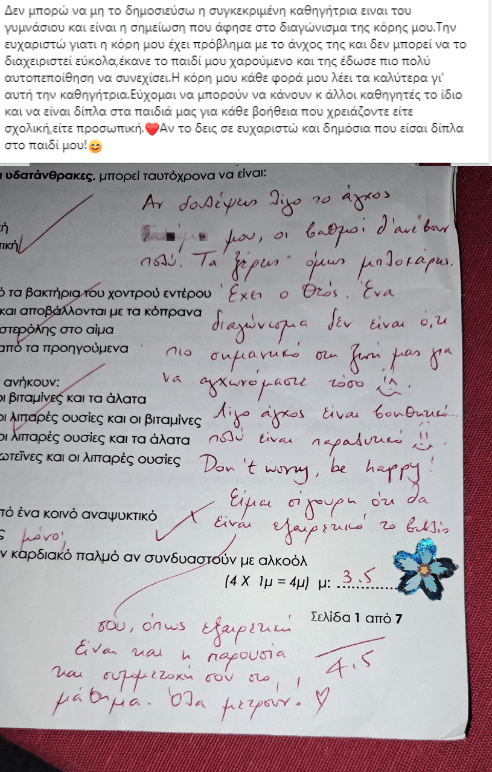 Δεν μπορώ να μη το δημοσιεύσω η συγκεκριμένη καθηγήτρια ειναι του
γυμνάσιου και είναι η σημείωση που άφησε στο διαγώνισμα της κόρης μου.Την
ευχαριστώ γιατι η κόρη μου έχει πρόβλημα με το άνχος της και δεν μπορεί να το
διαχειριστεί εύκολα,έκανε το παιδί μου χαρούμενο και της έδωσε πιο πολύ
αυτοπεποίθηση να συνεχίσει.Η κόρη μου κάθε φορά μου λέει τα καλύτερα γι'
αυτή την καθηγήτρια.Εύχομαι να μπορούν να κάνουν κ άλλοι καθηγητές το ίδιο
και να είναι δίπλα στα παιδιά μας για κάθε βοήθεια που χρειάζοντε είτε
σχολική,είτε προσωπική.❤️Αν το δεις σε ευχαριστώ και δημόσια που είσαι δίπλα
στο παιδί μου!😊
υδατάνθρακες, μπορεί ταυτόχρονα να είναι:
Αν δουλέψεις λίγο το άγχος
μου, οι βαθμοί θ' ανέβουν
πολύ. Τα ξέρεις όμως μπλοκάρεις.
ό τα βακτήρια του χοντρού εντέρου
Έχει ο Θεός. Ένα
και αποβάλλονται με τα κόπρανα
διαγώνισμα δεν είναι ό,τι
στερόλης στο αίμα
από τα προηγούμενα
πιο σημαντικό στη ζωή μας για
να αγχωνόμαστε τόσο
ανήκουν:
οι βιταμίνες και τα άλατα
οι λιπαρές ουσίες και οι βιταμίνες
Λίγο άγχος είναι βοηθητικό...
οι λιπαρές ουσίες και τα άλατα
πολύ είναι παραλυτικό
ωτεΐνες και οι λιπαρές ουσίες
Don't worry, be happy!
Είμαι σίγουρη ότι θα
πό ένα κοινό αναψυκτικό
είναι εξαιρετικό το βιβλίο
μόνο
ν καρδιακό παλμό αν συνδυαστούν με αλκοόλ
(4 Χ 1μ = 4μ) μ: 3.5
Σελίδα 1 από 7
σου, όπως εξαιρετική
είναι και η παρουσία
4.5
και συμμετοχή σου στο
μάθημα. Όλα μετρούν! ♡